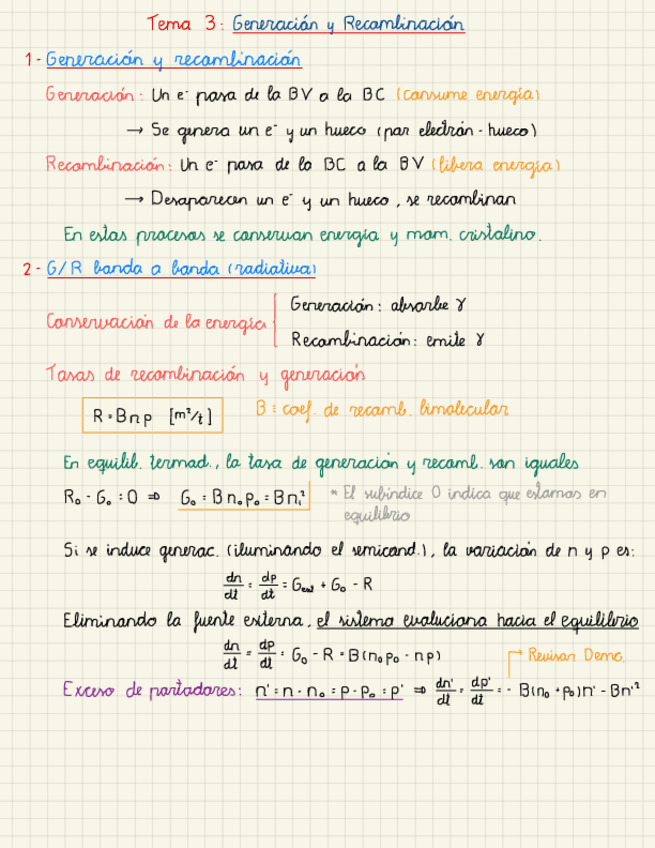 Tema 3: Generación y Recombinación
1- Generación y recombinación
Generación: Un e⁻ pasa de la BV a la BC (consume energía)
→ Se genera un e⁻ y un hueco (par electrón-hueco)
Recombinación: Un e⁻ pasa de la BC a la BV (libera energía)
→ Desaparecen un e⁻ y un hueco, se recombinan
En estos procesos se conservan energía y mom. cristalino.
2- G/R banda a banda (radiativa)
Conservación de la energía { Generación: absorbe γ
Recombinación: emite γ
Tasas de recombinación y generación
R = Bnp [m³/t] B: coef. de recomb. bimolecular
En equilib. termod., la tasa de generación y recomb. son iguales
R₀ - G₀ = 0 ⇒ G₀ = Bn₀p₀ = Bnᵢ² * El subíndice 0 indica que estamos en
equilibrio
Si se induce generac. (iluminando el semicond.), la variación de n y p es:
dn/dt = dp/dt = Gext + G₀ - R
Eliminando la fuente externa, el sistema evoluciona hacia el equilibrio
dn/dt = dp/dt = G₀ - R = B(n₀p₀ - np) → Revisar Demo.
Exceso de portadores: n' = n - n₀ = p - p₀ = p' ⇒ dn'/dt = dp'/dt = - B(n₀ + p₀)n' - Bn'²